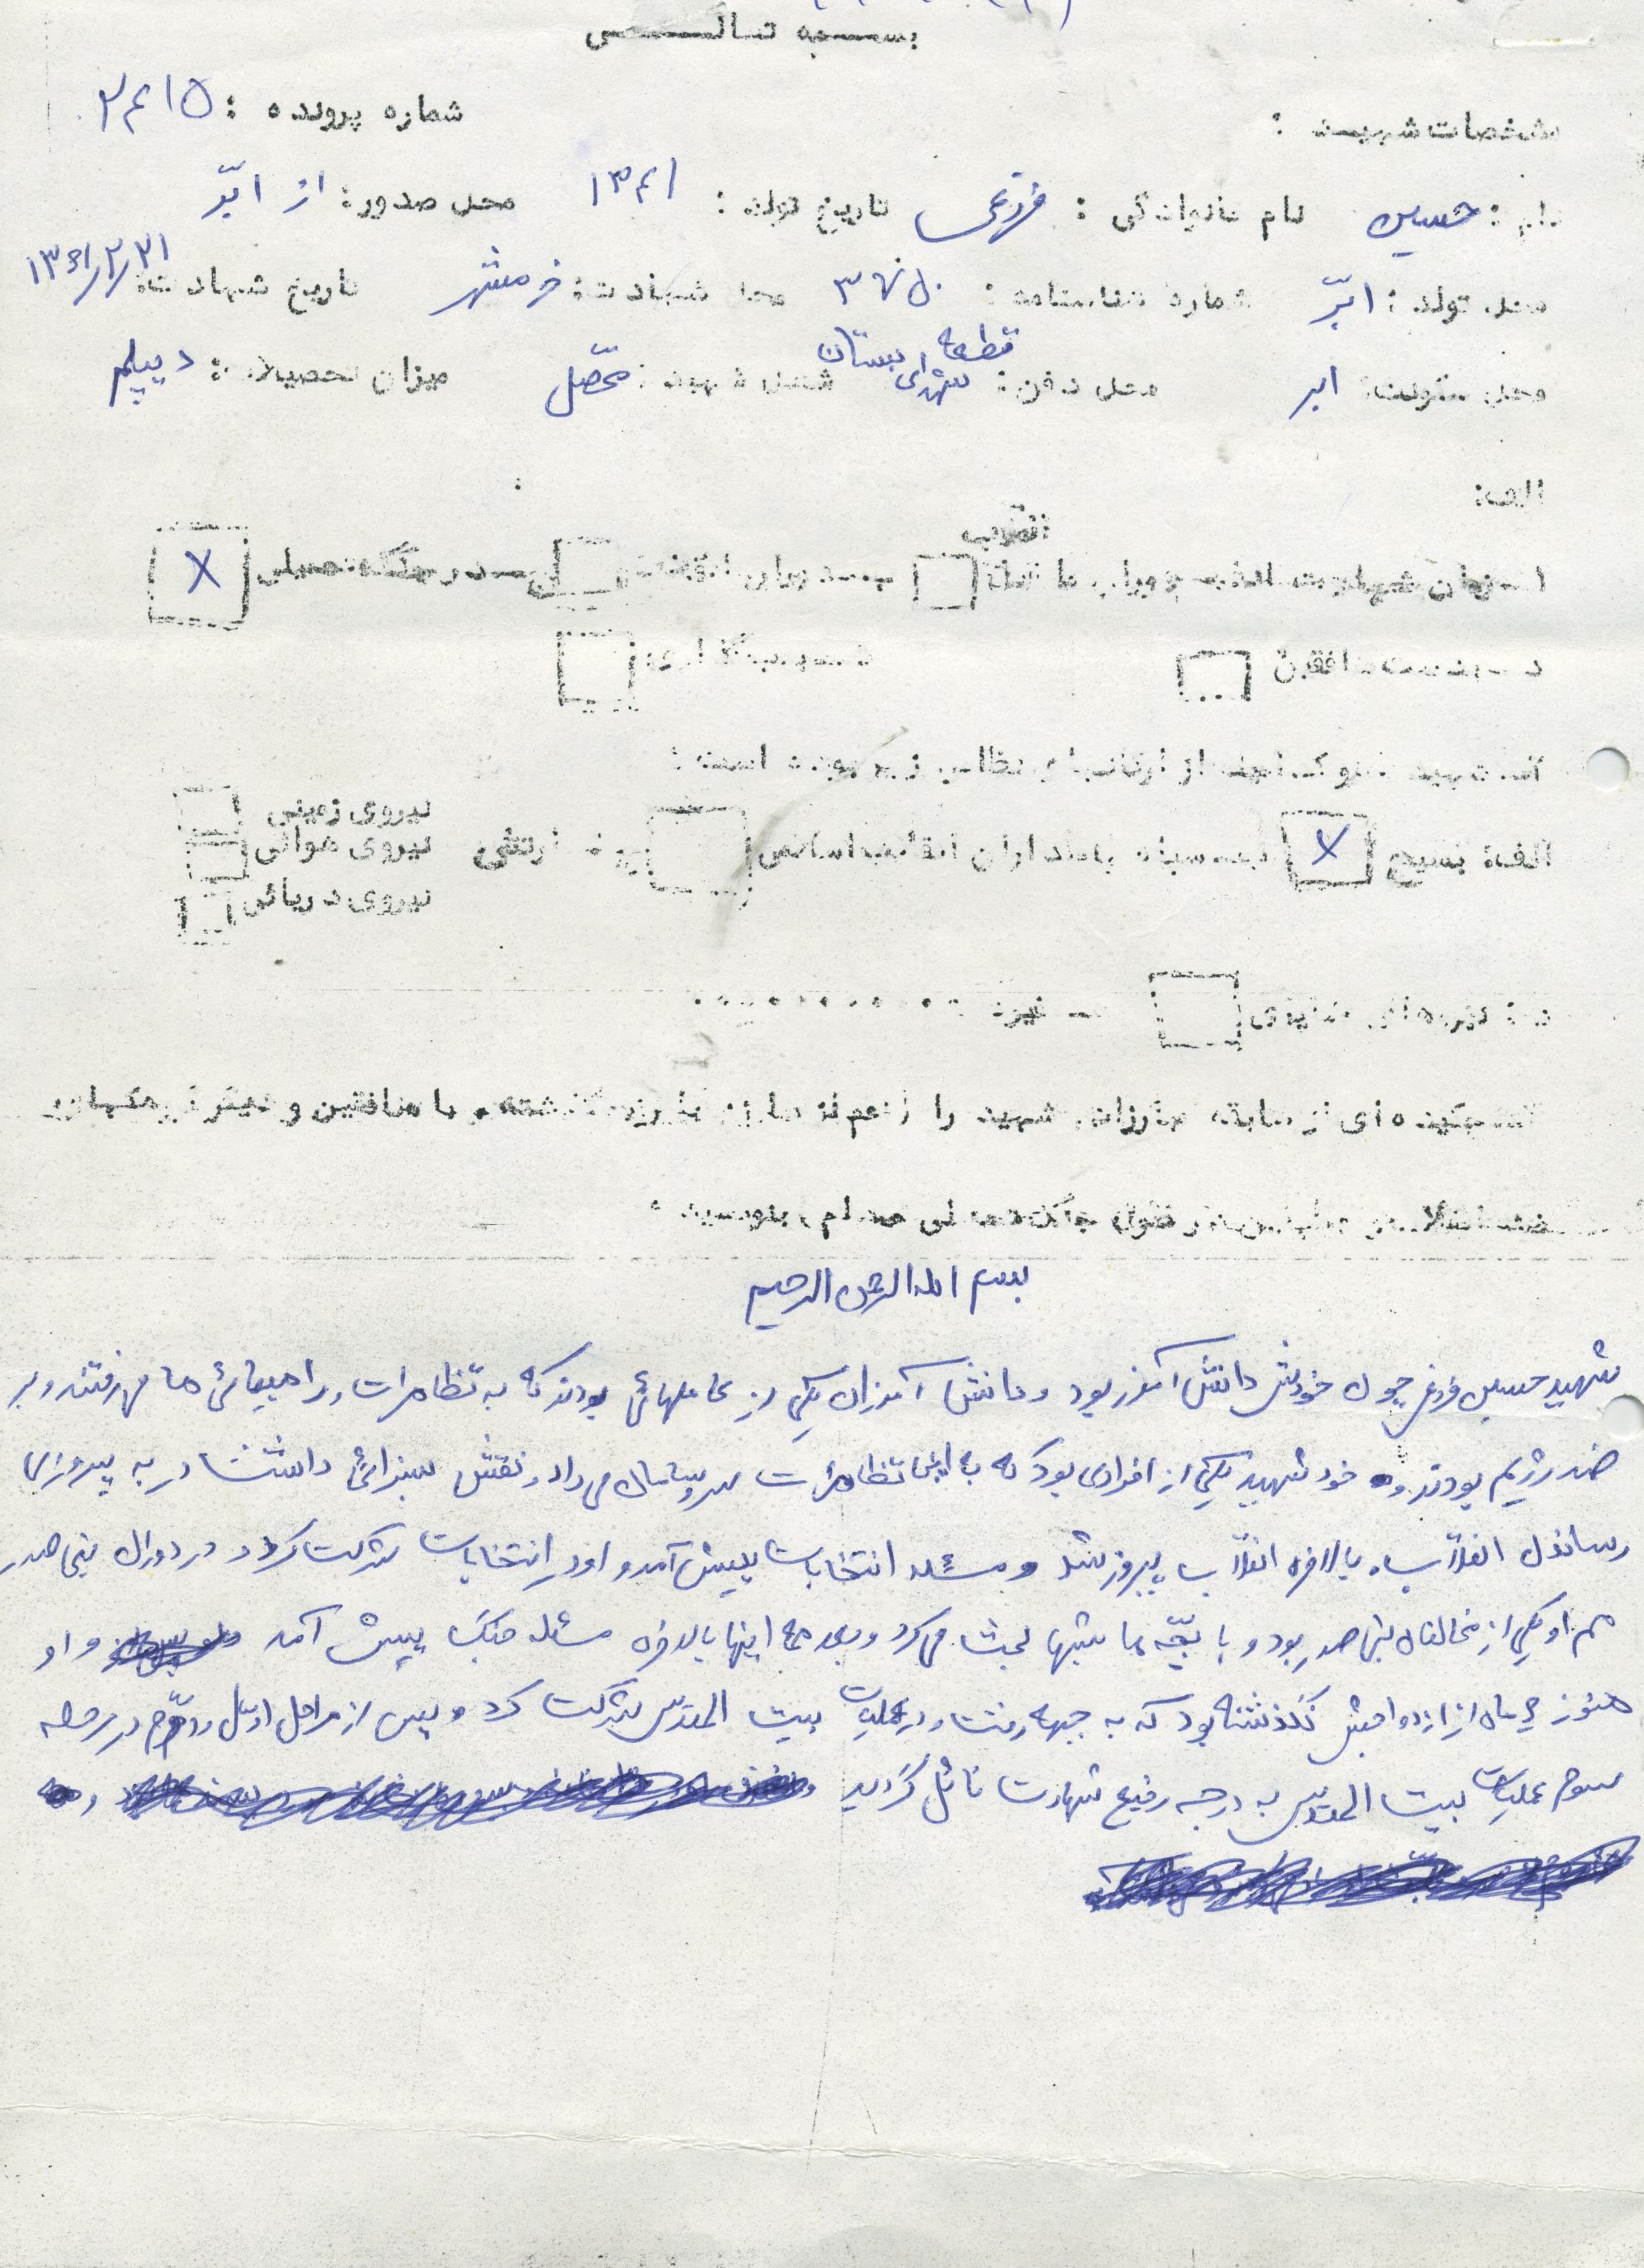 بسمه تعالی
مشخصات شهید :
شماره پرونده : ۲۴۱۵
نام : حسین نام خانوادگی : فروغی تاریخ تولد : ۱۳۴۱ محل صدور : از ابّر
محل تولد : ابّر شماره شناسنامه : محل شهادت : خرمشهر تاریخ شهادت : ۱۳۶۱/۲/۲۱
محل سکونت : ابر محل دفن : قطعه شهدای بستان شغل شهید : محصّل میزان تحصیلات : دیپلم
الف :
۱ - زمان شهادت الف - دوران ما قبل انقلاب ب - دوران انقلاب ج - در جنگ تحمیلی X
د - بدست منافقین ه - بمبگذاری
۲ - شهید عضو کدامیک از ارگانهای نظامی زیر بوده است :
الف : بسیج X ب - سپاه پاسداران انقلاب اسلامی ج : ارتش نیروی زمینی
نیروی هوائی
نیروی دریائی
د : گروههای ه - غیره ............
چکیده ای از سابقه مبارزاتی شهید را اعم از مبارزه با رژیم گذشته و با منافقین و دیگر گروهکهای
ضد انقلاب و در طول جنگ تحمیلی صدام ، بنویسید :
بسم الله الرحمن الرحیم
شهید حسین فروغی چون خودش دانش آموز بود و دانش آموزان یکی از عاملهائی بودند که به تظاهرات و راهپیمائی ها می رفتند و بر
ضد رژیم بودند و خود شهید یکی از افرادی بود که به این تظاهرات سر و سامان می داد و نقش بسزائی داشت در به پیروزی
رساندن انقلاب ، بالاخره انقلاب پیروز شد و مسئله انتخابات پیش آمد و او در انتخابات شرکت کرد در دوران بنی صدر
هم او یکی از مخالفان بنی صدر بود و با بچّه ها شبها بحث می کرد و بعد همه اینها بالاخره مسئله جنگ پیش آمد و او
هنوز ماه از ازدواجش نگذشته بود که به جبهه رفت و در عملیات بیت المقدس شرکت کرد و پس از مراحل اوّل و دوّم در مرحله
سوم عملیات بیت المقدس به درجه رفیع شهادت نائل گردید